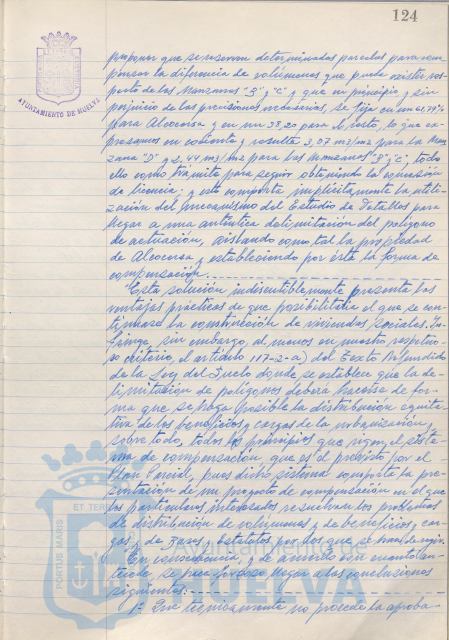 124
AYUNTAMIENTO DE HUELVA
proponer que se reserven determinadas parcelas para com
pensar la diferencia de volúmenes que pueda existir res
pecto de las Manzanas "B" y "C" y que en principio y sin
perjuicio de las precisiones necesarias, se fija en un 61,79%
para Alcoensa y en un 38,20 para el resto, lo que ex
presamos en cociente y resulta 3,07 m3/m2 para la Man
zana "D" y 2,44 m3/m2 para las manzanas "B" y "C", todo
ello como trámite para seguir obteniendo la concesión
de licencia; y esto comporta implícitamente la utili-
zación del mecanismo del Estudio de Detalles para
llegar a una auténtica delimitación del polígono
de actuación, aislando como tal la propiedad
de Alcoensa y estableciendo por ésta la forma de
compensación.
"Esta solución indiscutiblemente presenta las
ventajas prácticas de que posibilitaría el que se con-
tinuase la construcción de viviendas sociales. In-
fringe, sin embargo, al menos en nuestro respetuo-
so criterio, el artículo 117-2-a) del Texto Refundido
de la Ley del Suelo donde se establece que la de-
limitación de polígonos deberá hacerse de for-
ma que se haga posible la distribución equita-
tiva de los beneficios y cargas de la urbanización y
sobre todo, todos los principios que rigen el siste
ma de compensación que es el previsto por el
Plan Parcial, pues dicho sistema comporta la pre-
sentación de un proyecto de compensación en el que
los particulares interesados resuelvan los problemas
de distribución de volúmenes y de beneficios, car-
gas, y Bases y Estatutos por los que se han de regir.
En consecuencia, y de acuerdo con cuanto an-
tecede, se hace forzoso llegar a las conclusiones
siguientes:
1ª Que técnicamente no procede la aproba-
PORTUS MARIS
ET TERRE
Ayuntamiento de
HUELVA